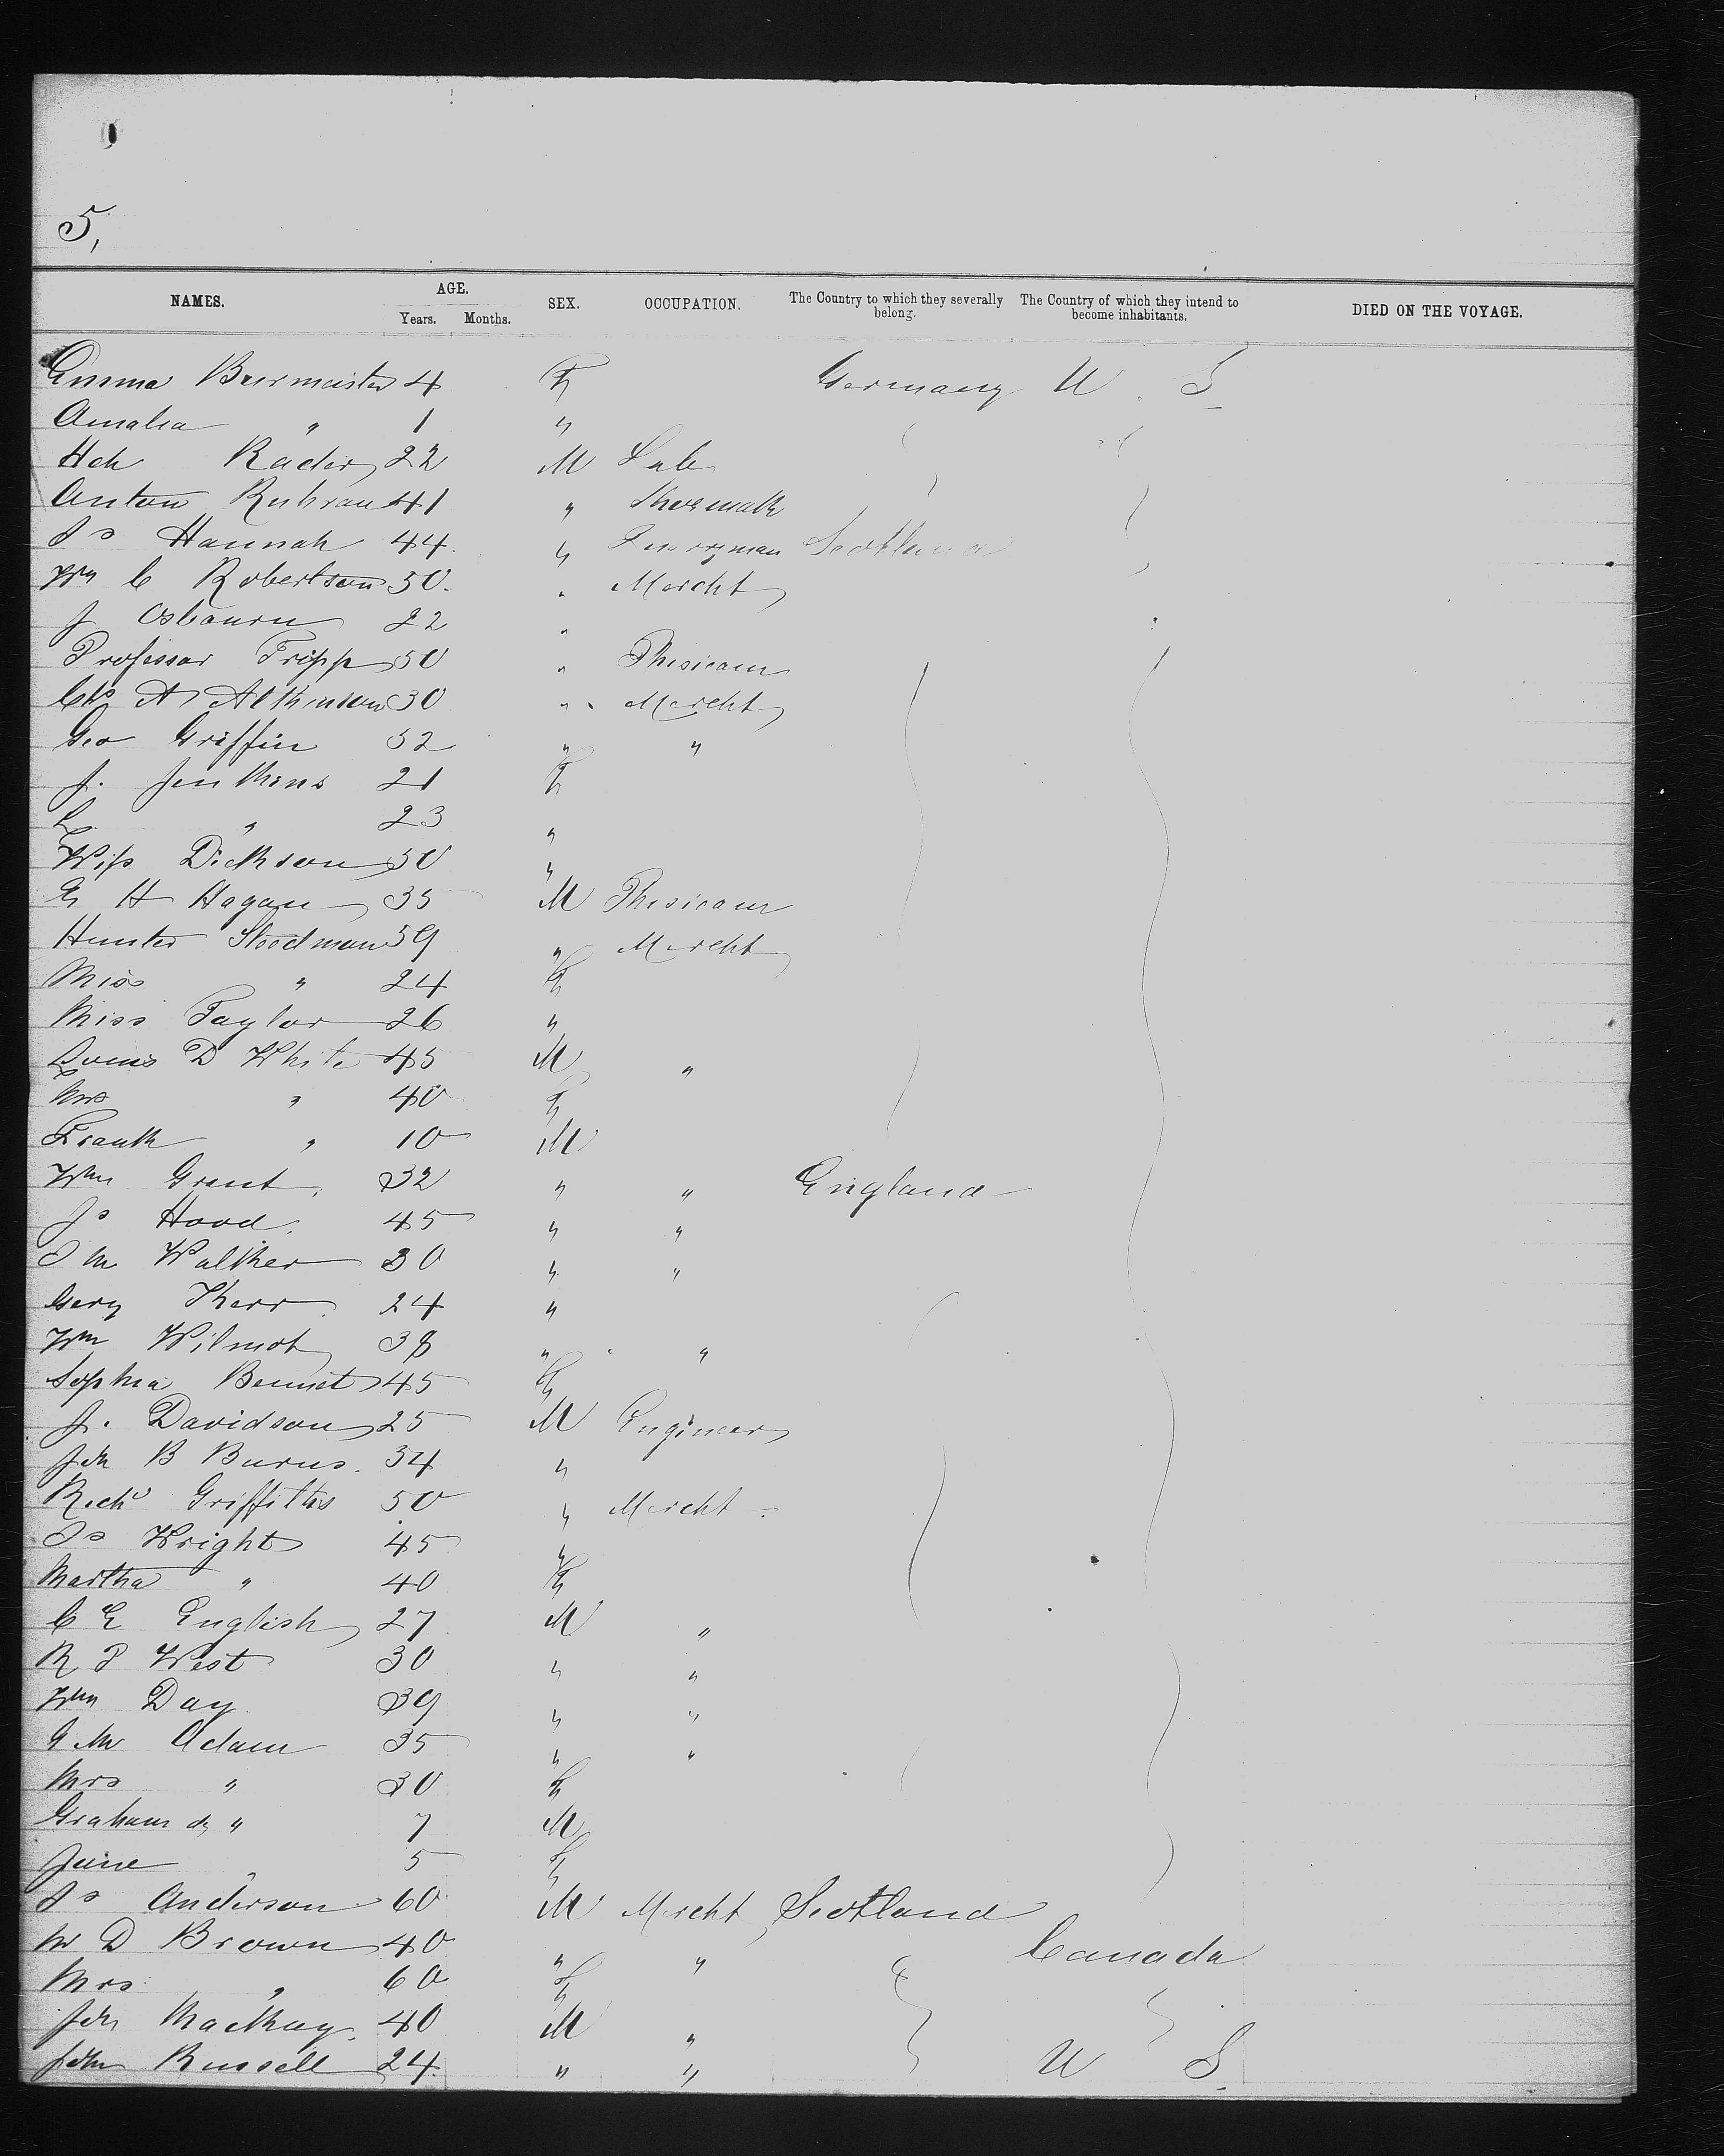 5,
NAMES. AGE. Years. Months. SEX. OCCUPATION. The Country to which they severally belong. The Country of which they intend to become inhabitants. DIED ON THE VOYAGE.
Emma Burmeister 4 F Germany U S
Amalia " 1 "
Hch Rader 22 M Lab
Anton 41 "
Js Hannah 44 " Scotland
Wm C Robertson 50 " Mercht
J Osbourn 22 "
Professor Tripp 50 " Phisicam
Chs A Atkinson 30 " Mercht
Geo Griffin 32 " "
J. Jenkins 21 F
" 23 "
Dickson 50 "
G H Hagan 35 M Phisicam
Hunter Stoodman 59 " Mercht
Miss " 24 F
Miss Taylor 26 "
Louis D White 45 M "
Mrs " 40 F
Frank " 10 M
Wm Grant 32 " " England
Js Hood 45 " "
J M Walker 30 " "
Kerr 24 "
Wm Wilmot 38 " "
Sophia Bennet 45 F
J. Davidson 25 M Engineer
Jn B Burns 34 "
Richd Griffiths 50 " Mercht
Js Wright 45 "
Martha " 40 F
C E English 27 M "
R P West 30 " "
Wm Day 39 " "
G M Adam 35 " "
Mrs " 30 F
Graham " 7 M
Jane " 5 F
Js Anderson 60 M Mercht Scotland
W D Brown 40 " " Canada
Mrs " 60 F
Jn Mackay 40 M "
John Russell 24 " " U S